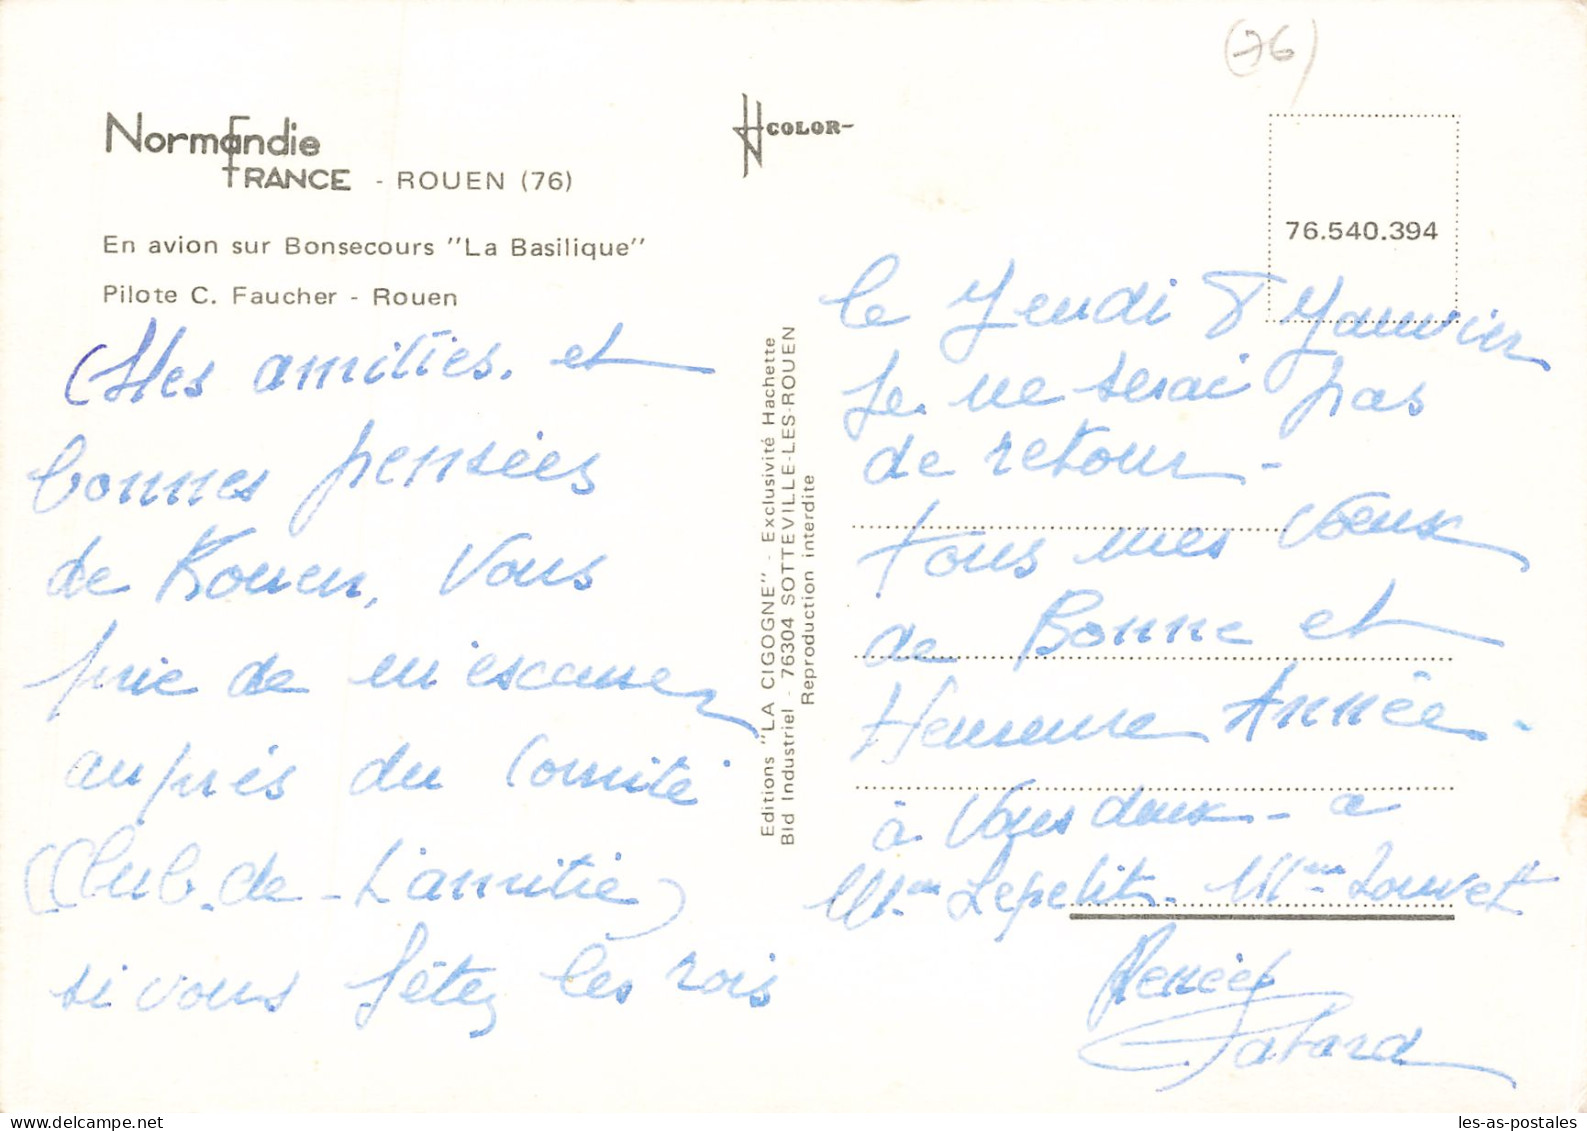 (76)
Normandie
FRANCE - ROUEN (76)
En avion sur Bonsecours "La Basilique"
Pilote C. Faucher - Rouen
Mes amitiés. et
bonnes pensées
de Rouen. Vous
prie de m'excuser
auprès du Comité
(Club-de-L'amitié)
si vous fêtez les rois
Editions "LA CIGOGNE" - Exclusivité Hachette
Bld Industriel - 76304 SOTTEVILLE-LES-ROUEN
Reproduction interdite
COLOR-
76.540.394
le Jeudi 8 Janvier
Je ne serai pas
de retour -
tous mes voeux
de Bonne et
Heureuse Année -
à vous deux - a
Mme Lepetit - Mme Louvet
Renée
les-as-postales